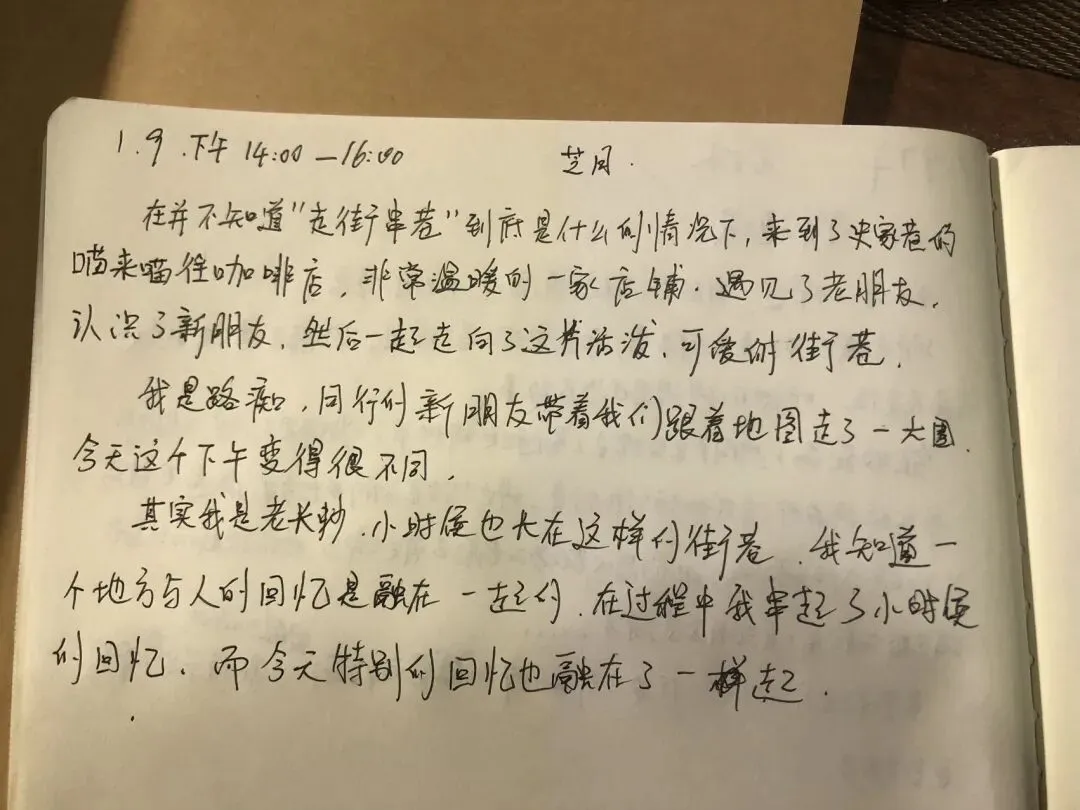 1.9.下午 14:00—16:00 芝同.
在并不知道"走街串巷"到底是什么的情况下,来到了史家巷的
喵来喵往咖啡店,非常温暖的一家店铺.遇见了老朋友,
认识了新朋友,然后一起走向了这片活泼、可爱的街巷.
我是路痴,同行的新朋友带着我们跟着地图走了一大圈.
今天这个下午变得很不同.
其实我是老长沙.小时侯也长在这样的街巷.我知道一
个地方与人的回忆是融在一起的.在过程中我串起了小时侯
的回忆.而今天特别的回忆也融在了一起.